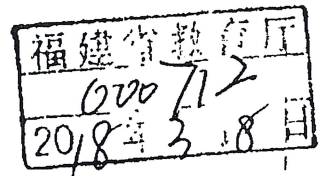 福建省教育厅
000712
2018年3月8日